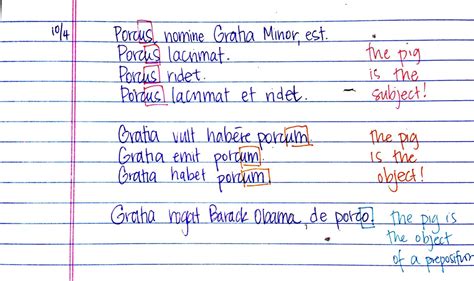 10/4 Porcus nomine Gratia Minor, est.
Porcus lacrimat. the pig
Porcus ridet. is the
Porcus lacrimat et ridet. – subject!
Gratia vult habēre porcum the pig
Gratia emit porcum. is the
Gratia habet porcum. object!
Gratia rogat Barack Obama, de porco. the pig is
the object
of a preposition